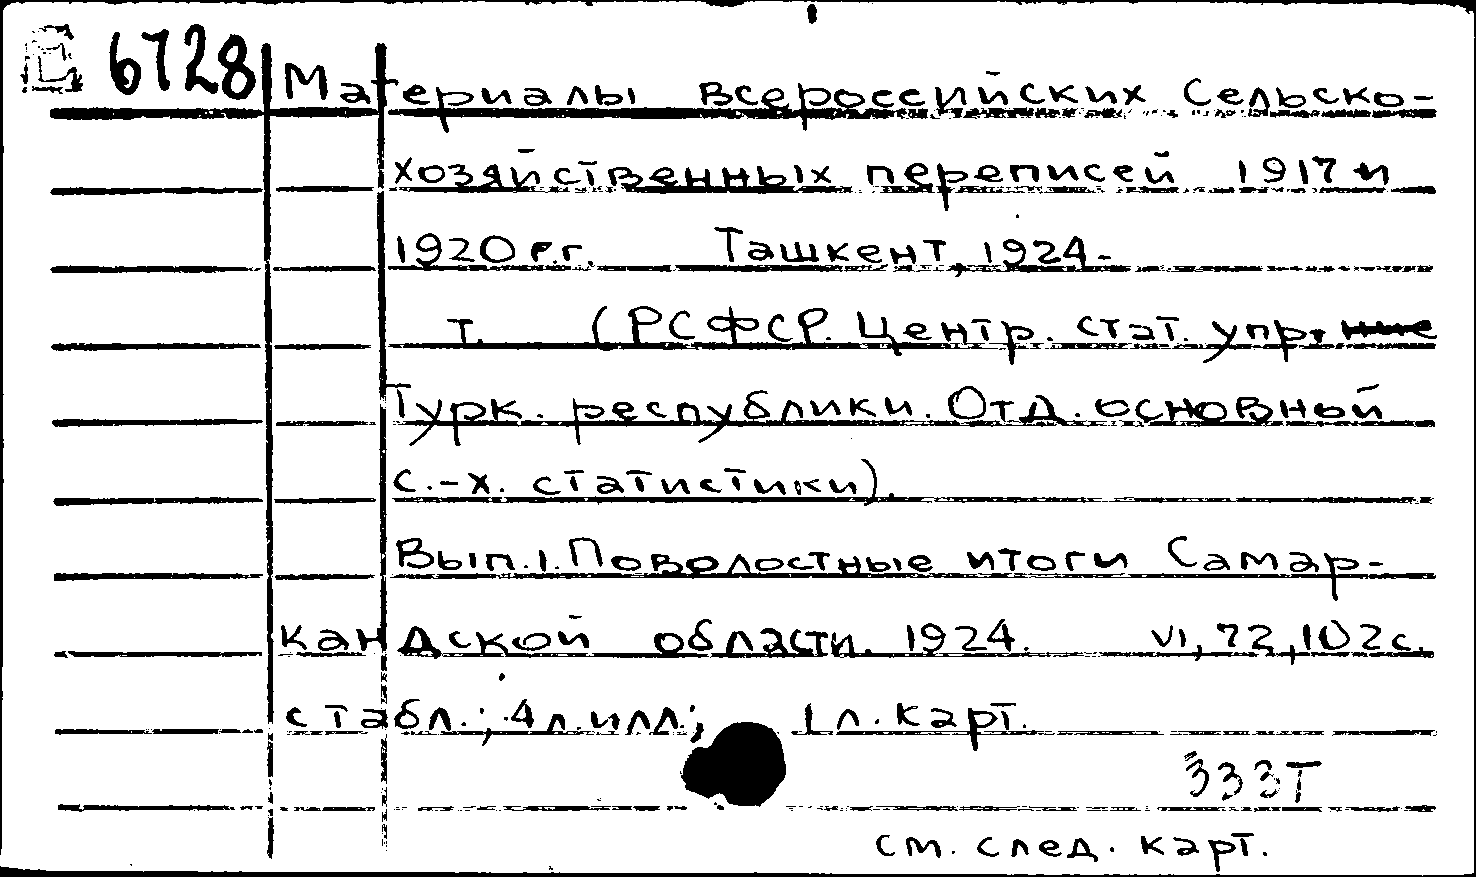 6728 Материалы всероссийских Сельско-
хозяйственных переписей 1917 и
1920 г.г. Ташкент, 1924-
т. (РСФСР. Центр. стат. упр.
Турк. республики. Отд. основной
с.-х. статистики).
Вып. 1. Поволостные итоги Самар-
кандской области. 1924. VI, 72, 102 с.
с табл.; 4 л. илл.; 1 л. карт.
333Т
см. след. карт.